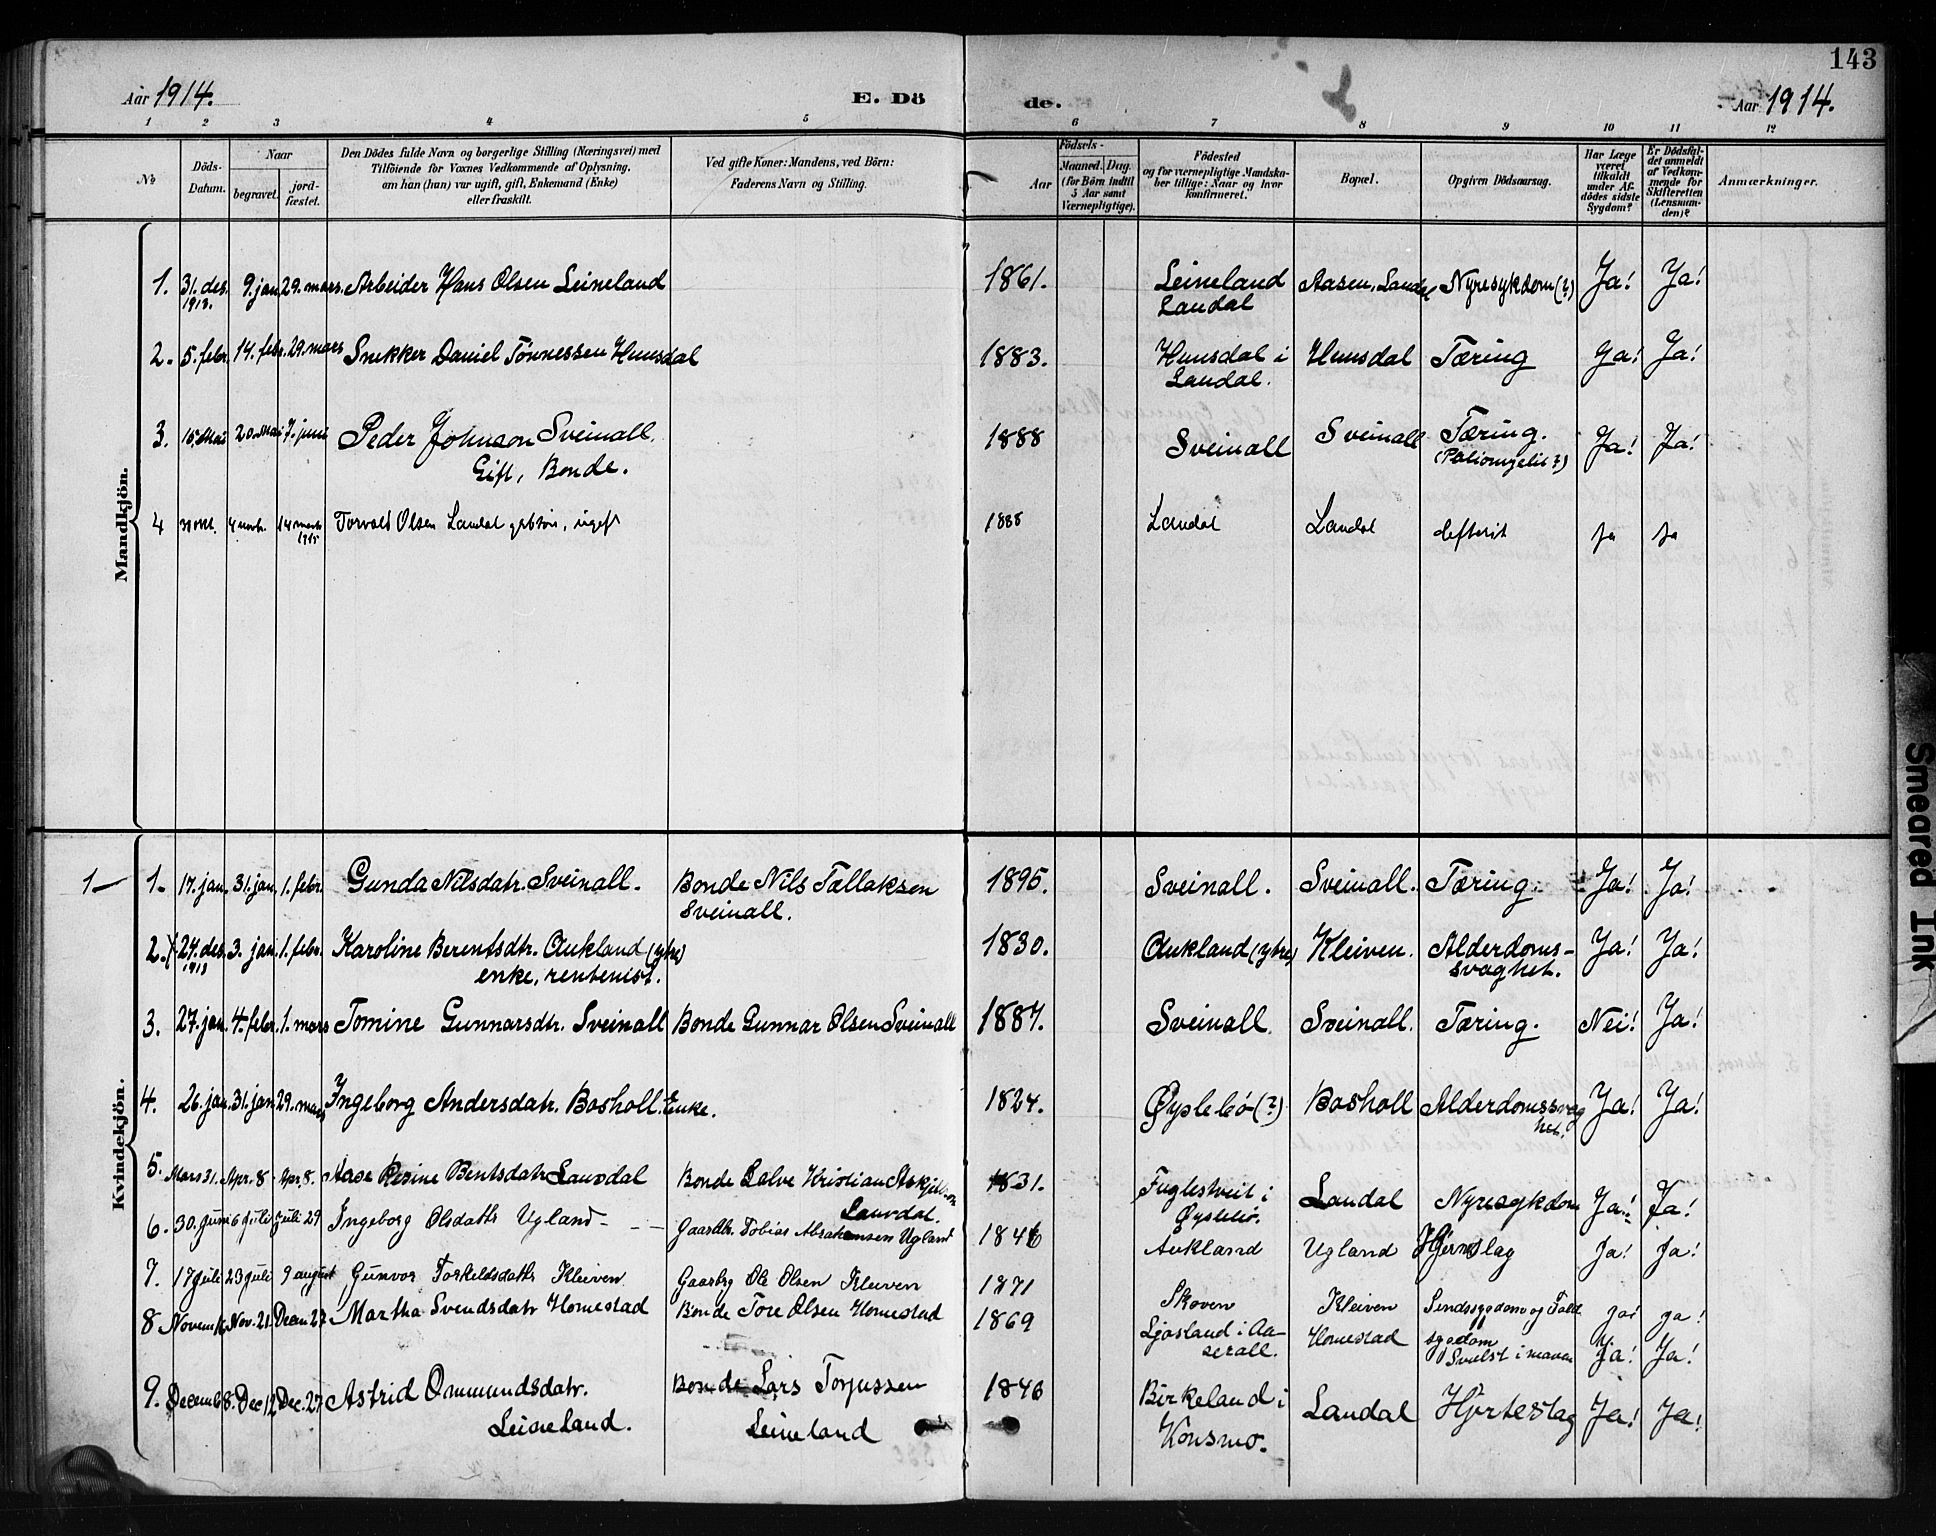 143
Aar 1914. E. Dö de. Aar 1914.
1 2 3 4 5 6 7 8 9 10 11 12
No
Döds-Datum.
Naar
begravet. jord-fæstet.
Den Dödes fulde Navn og borgerlige Stilling (Næringsvei) med
Tilföiende for Voxnes Vedkommende af Oplysning,
om han (hun) var ugift, gift, Enkemand (Enke)
eller fraskilt.
Ved gifte Koner: Mandens, ved Börn:
Faderens Navn og Stilling.
Födsels-
Aar Maaned. Dag.
(for Börn indtil
5 Aar samt
Værnepligtige).
Födested
og for værnepligtige Mandskaber tillige: Naar og hvor
konfirmeret.
Bopæl.
Opgiven Dödsaarsag.
Har Læge været tilkaldt under Afdödes sidste Sygdom?
Er Dödsfaldet anmeldt af Vedkommende for Skifteretten (Lensmanden)?
Anmærkninger.
Mandkjön.
1. 31. des. 1913. 9. jan. 29. mars. Arbeider Hans Olsen Leineland 1861. Leineland Laudal Aasen, Laudal Nyresykdom (?) Ja! Ja!
2. 5. febr. 14. febr. 29. mars Snekker Daniel Tönnessen Hunsdal 1883. Hunsdal i Laudal. Hunsdal Tæring Ja! Ja!
3. 15. Mai 20. Mai 7. juni Peder Johnson Sveinall. Gift, Bonde. 1888 Sveinall Sveinall Tæring. (Poliomyelit?) Ja! Ja!
4 4 novb. 14 mars 1915 Torvald Olsen Laudal gbrsön, ugift 1888 Laudal Laudal defterit Ja Ja
Kvindekjön.
1 1. 17. jan. 31. jan. 1. febr. Gunda Nilsdatr. Sveinall. Bonde Nils Tællaksen Sveinall. 1895. Sveinall. Sveinall. Tæring. Ja! Ja!
2. 24. des. 1913 3. jan. 1. febr. Karoline Berentsdtr. Aukland (ytre) enke, rentenist. 1830. Aukland (ytre) Kleiven. Alderdoms-svaghet. Ja! Ja!
3. 27. jan. 4. febr. 1. mars Tomine Gunnarsdtr. Sveinall Bonde Gunnar Olsen Sveinall 1887. Sveinall. Sveinall. Tæring. Nei! Ja!
4. 26. jan. 31. jan. 29. mars Ingeborg Andersdatr. Bosholl. Enke. 1824. Öyslebö (?) Bosholl Alderdomssvaghet. Ja! Ja!
5. Mars 31. Apr. 8 Apr. 8. Aase Resine Bentsdatr Laudal Bonde Salve Kristian Askjellsen Laudal. 1831. Fuglestveit i Öyslebö. Laudal Nyresykdom Ja! Ja!
6. 30. Juni 6 Juli Juli 29 Ingeborg Olsdattr Ugland Gaardbr. Tobias Abrahamsen Ugland 1846 Aukland Ugland Hjerneslag Ja! Ja!
7. 17 Juli 23 juli 9 august Gunvor Torkeldsdattr Kleiven Gaardbr Ole Olsen Kleiven 1871 Skoven Kleiven Sindssygdom og Faldsygdom Ja! Ja!
8 Novem 16 Nov. 21. Decem 27 Martha Svendsdatr Homestad Bonde Tore Olsen Homestad 1869 Ljosland i Aaserall. Homestad Svulst i maven Ja! Ja!
9. Decemb 8. Dec 12 Dec. 27 Astrid Ommundsdatr. Leineland. Bonde Lars Torjussen Leineland 1846 Birkeland i Konsmo. Laudal Hjerteslag Ja! Ja!
Smeared Ink